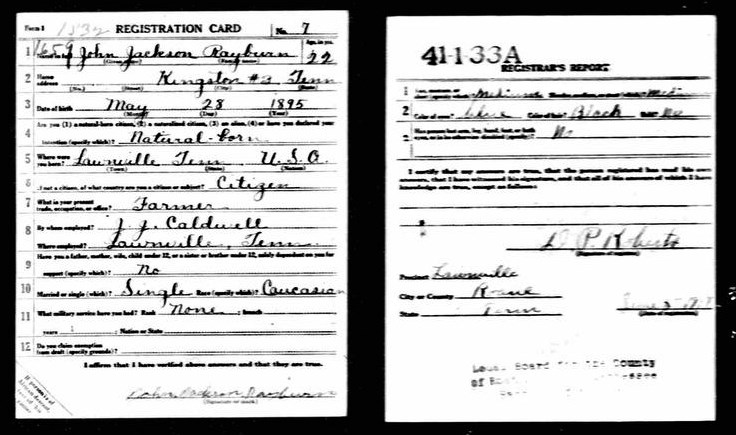 Form 1 1532 REGISTRATION CARD No. 7
1 John Jackson Rayburn Age, in yrs. 22
(Given name) (Family name)
2 Home address Kingston #3 Tenn
(No.) (Street) (City) (State)
3 Date of birth May 28 1895
(Month) (Day) (Year)
4 Are you (1) a natural-born citizen, (2) a naturalized citizen, (3) an alien, (4) or have you declared your
intention (specify which)? Natural-born
5 Where were you born? Lawnville Tenn U.S.A.
(Town) (State) (Nation)
6 If not a citizen, of what country are you a citizen or subject? Citizen
7 What is your present trade, occupation, or office? Farmer
8 By whom employed? J. J. Caldwell
Where employed? Lawnville, Tenn.
9 Have you a father, mother, wife, child under 12, or a sister or brother under 12, solely dependent on you for
support (specify which)? No
10 Married or single (which)? Single Race (specify which)? Caucasian
11 What military service have you had? Rank None ; branch
years ; Nation or State
12 Do you claim exemption from draft (specify grounds)?
I affirm that I have verified above answers and that they are true.
John Jackson Rayburn
(Signature or mark)
41-1-33 A
REGISTRAR'S REPORT
1 Tall, medium, or short (specify which)? Medium Slender, medium, or stout (which)?
2 Color of eyes? Blue Color of hair? Black Bald? No
3 Has person lost arm, leg, hand, foot, or both eyes, or is he otherwise disabled (specify)? No
I certify that my answers are true, that the person registered has read his own
answers, that I have witnessed his signature, and that all of his answers of which I have
knowledge are true, except as follows:
D. P. Roberts
(Signature of registrar)
Precinct Lawnville
City or County Roane
State Tenn
(Date of registration)
Local Board for the County
of